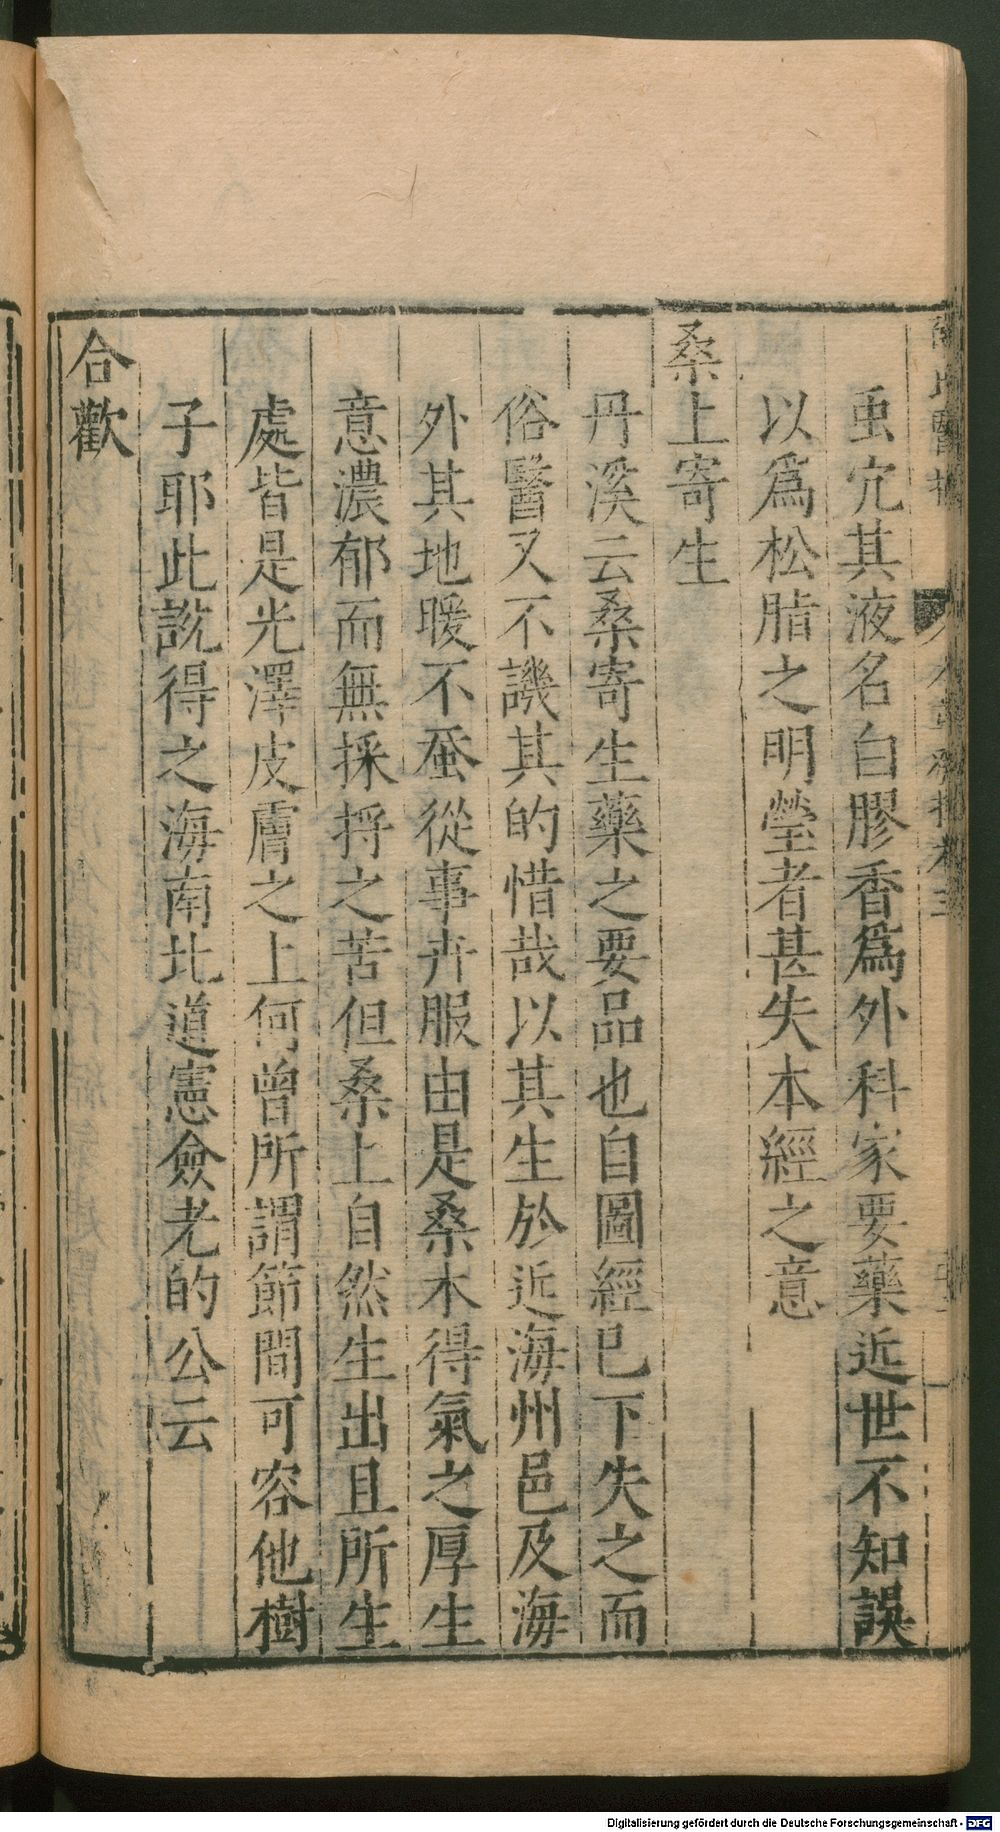 虫宂其液名白膠香爲外科家要藥近世不知誤
以爲松脂之明瑩者甚失本經之意
桑上寄生
丹溪云桑寄生藥之要品也自圖經已下失之而
俗醫又不譏其的惜哉以其生於近海州邑及海
外其地暖不蚕從事卉服由是桑木得氣之厚生
意濃郁而無採捋之苦但桑上自然生出且所生
處皆是光澤皮膚之上何曾所謂節間可容他樹
子耶此說得之海南北道憲僉老的公云
合歡
Digitalisierung gefördert durch die Deutsche Forschungsgemeinschaft - DFG